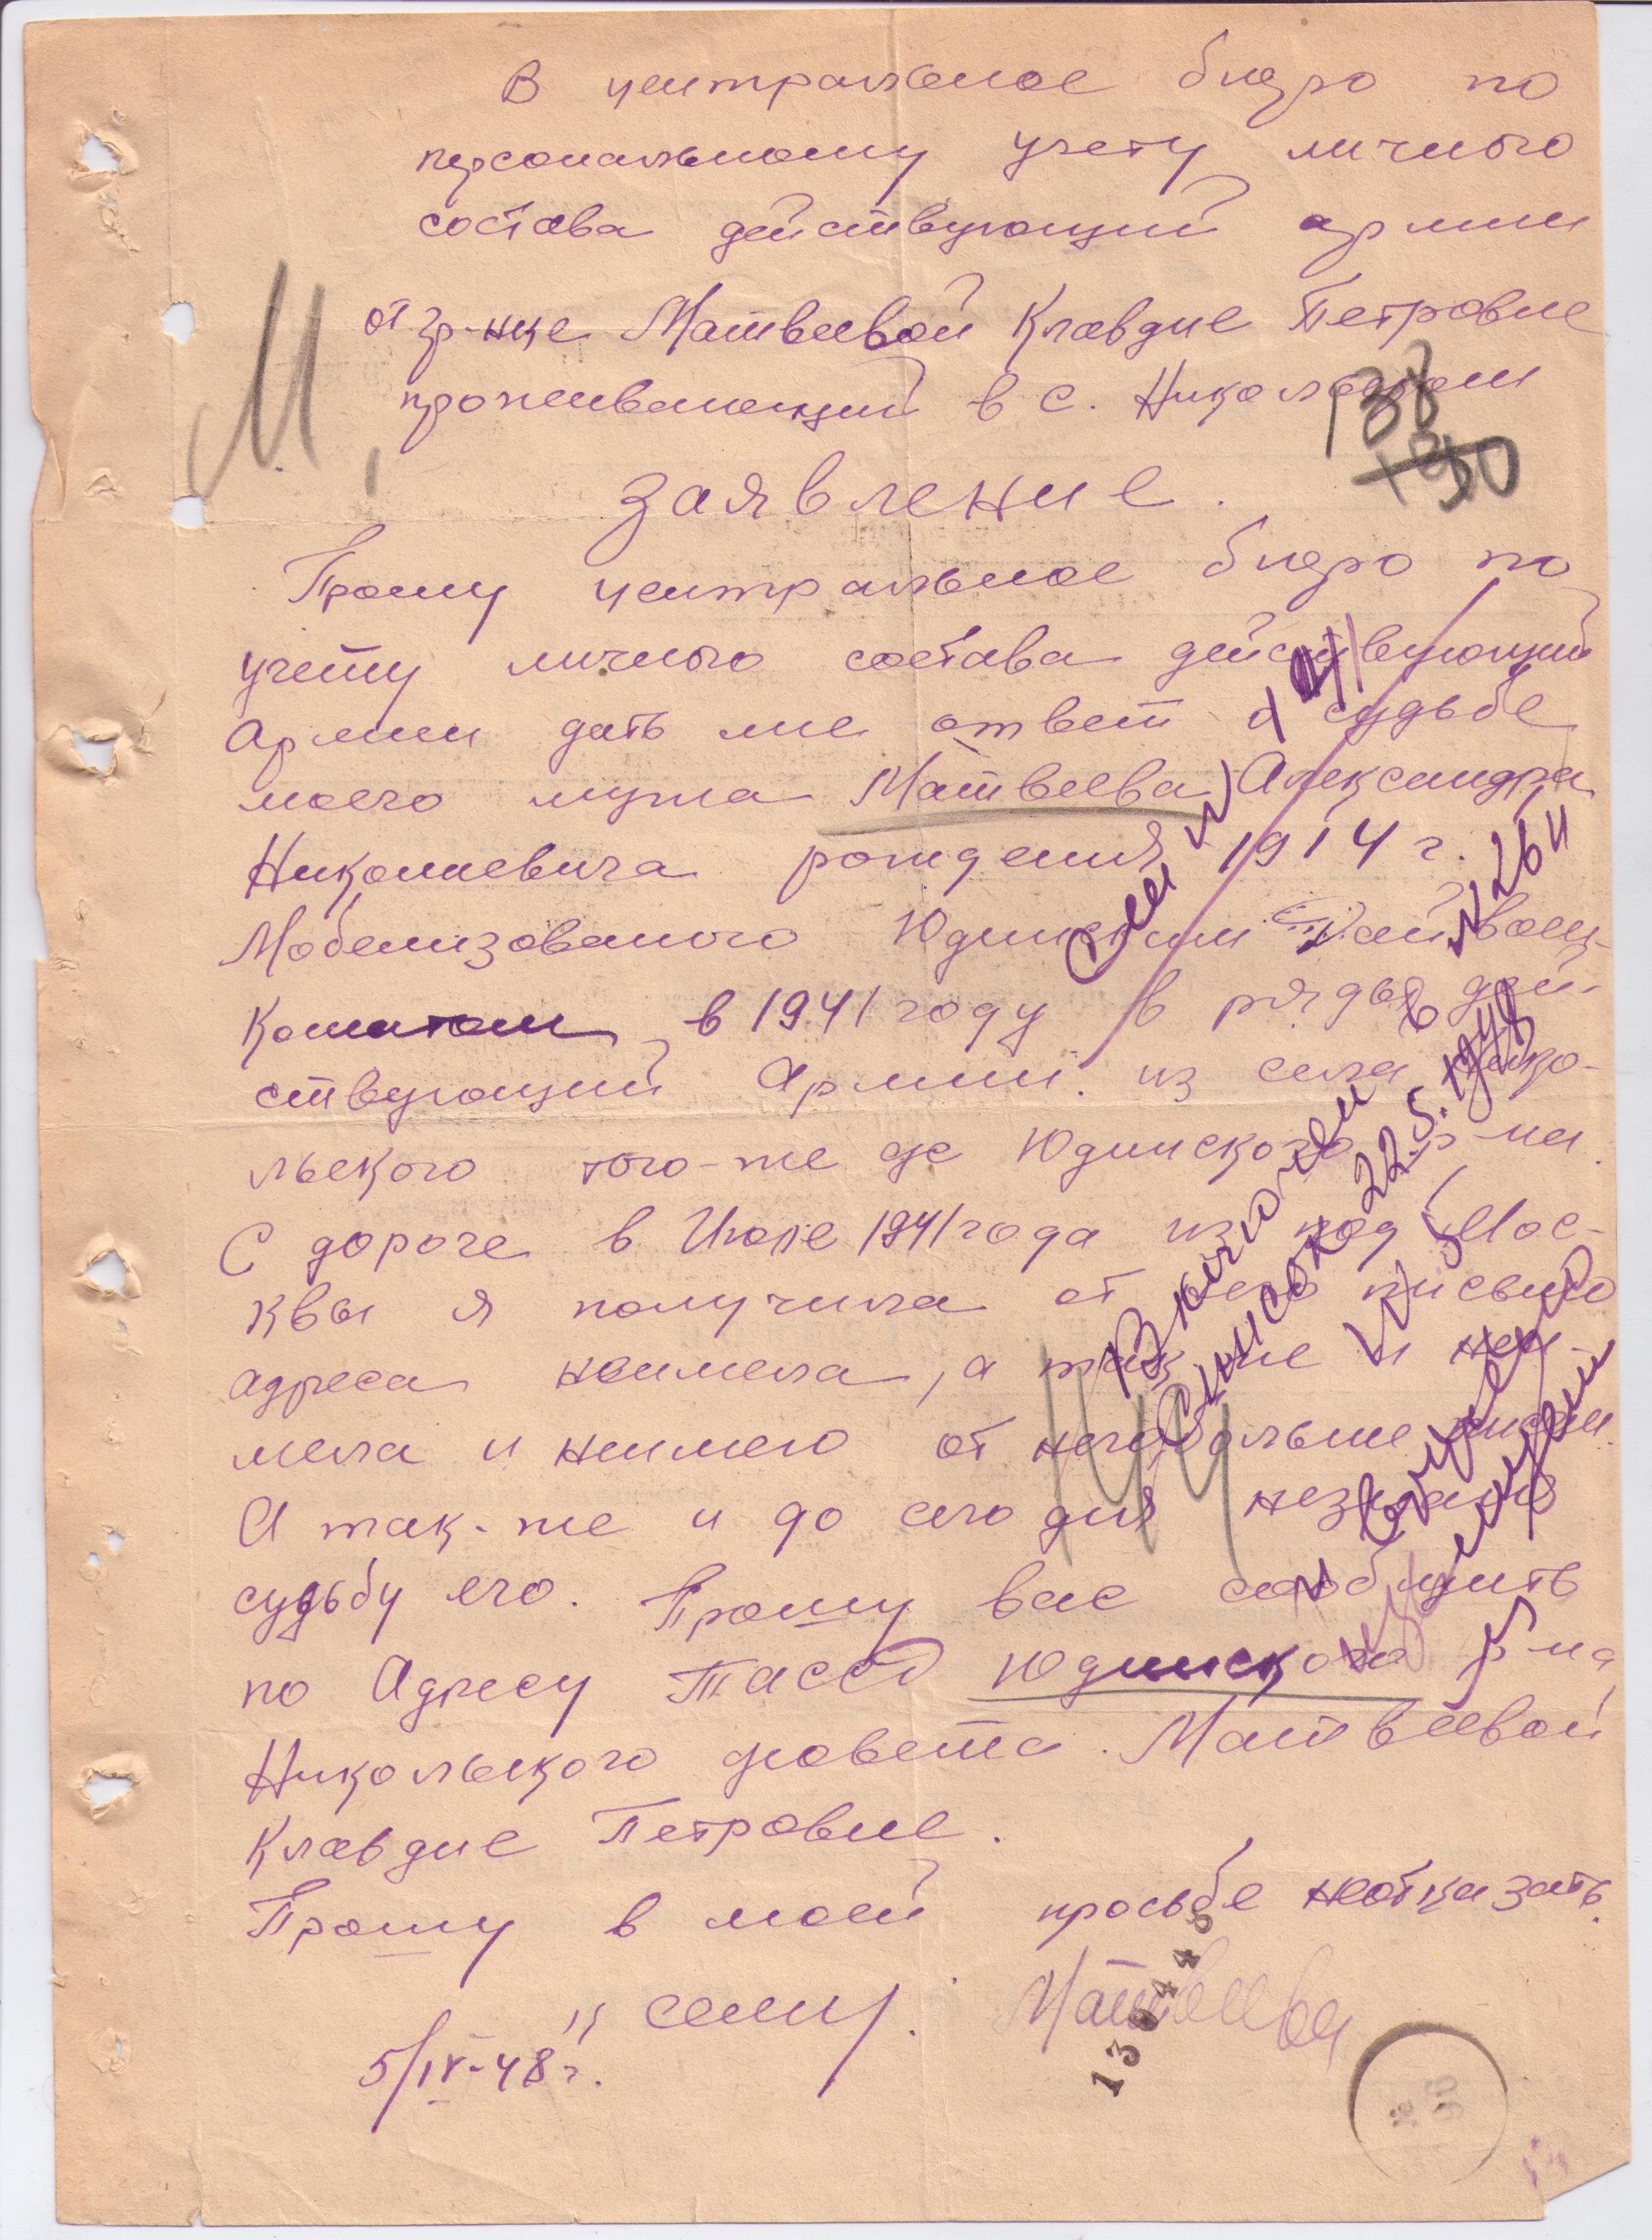 В центральное бюро по
персональному учету личного
состава действующий армии
от гр-нке Матвеевой Клавдие Петровне
проживающий в с. Никольском
М
138
Заявление.
Прошу центральное бюро по
учету личного состава действующий
Армии дать мне ответ о судьбе
моего мужа Матвеева Александра
Николаевича рождения 1914 г.
Мобелизованого Юдинским Рай воен-
Коматом, в 1941 году в ряды дей-
ствующий Армии. из села Нико-
льского того-же Юдинского р-на.
С дороге в Июле 1941 года из под Мос-
квы я получила от его письмо
адреса неимела, а так же и неи-
мела и неимею от него больше писем.
А так-же и до сего дня незнаю
судьбу его. Прошу вас сообщить
по Адресу ТАССР Юдинского р-на
Никольского совета. Матвеевой
Клавдие Петровне.
Прошу в моей просьбе неотказать.
к сему. Матвеева
5/IV-48 г.
Включен в
список 22.5.1948
№ 26
144